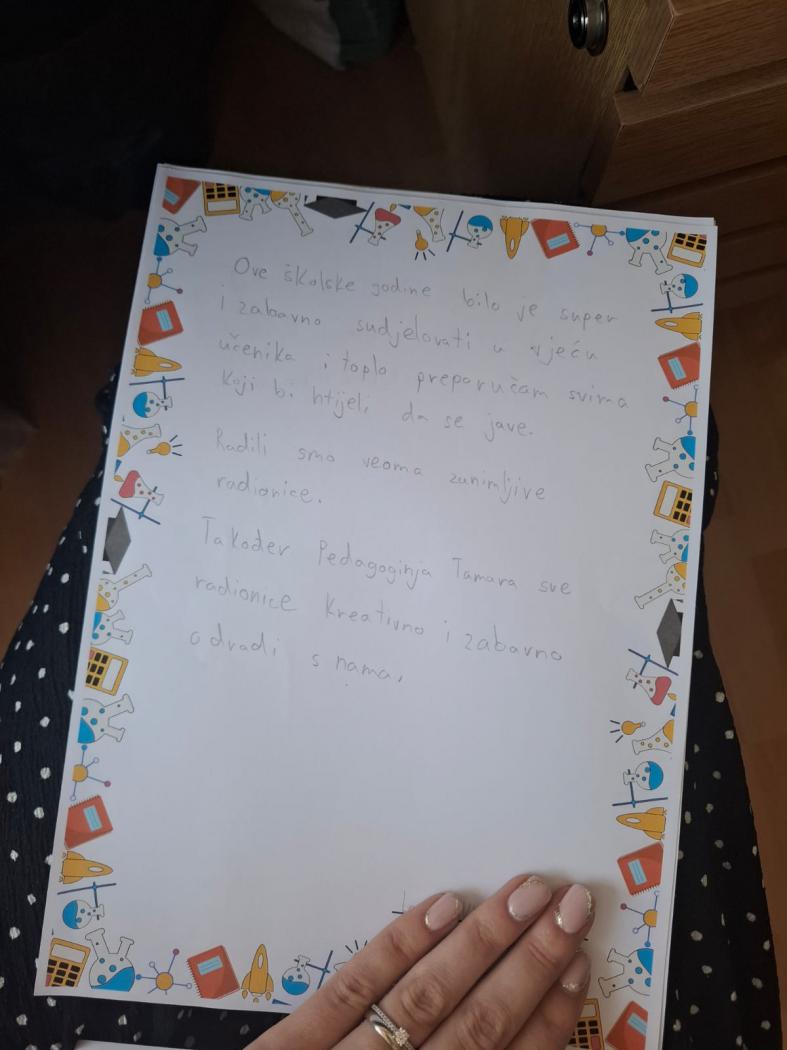 Ove školske godine bilo je super
i zabavno sudjelovati u vjeću
učenika i toplo preporučam svima
koji bi htijeli da se jave.
Radili smo veoma zanimljive
radionice.
Također Pedagoginja Tamara sve
radionice kreativno i zabavno
odradi s nama.